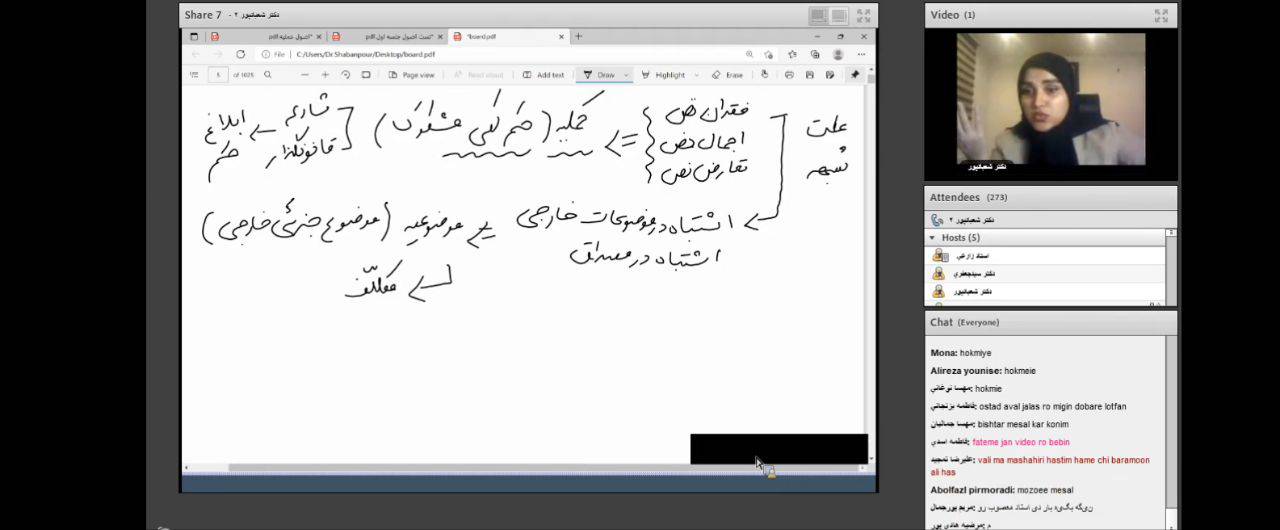 Share 7 دکتر شعبانپور - ۲
Video (1)
اصول عملیه.pdf
تست اصول جلسه اول.pdf
*board.pdf
File C:/Users/Dr.Shabanpour/Desktop/board.pdf
5 of 1025 Page view Read aloud Add text Draw Highlight Erase
علت شبهه
فقدان نص
اجمال نص
تعارض نص
حکمیه (حکم کلی مشکوک)
شارع
قانونگذار
ابلاغ حکم
اشتباه در موضوعات خارجی
موضوعیه (موضوع جزئی خارجی)
اشتباه در مصداق
مکلّف
دکتر شعبانپور
Attendees (273)
دکتر شعبانپور ۲
Hosts (5)
استاد زارعی
دکتر سیدجعفری
دکتر شعبانپور
Chat (Everyone)
Mona: hokmiye
Alireza younise: hokmeie
hokmie
ostad aval jalas ro migin dobare lotfan
مهسا جمالیان: bishtar mesal kar konim
فاطمه اسدی: fateme jan video ro bebin
علیرضا تمجید: vali ma mashahiri hastim hame chi baramoon
ali has
Abolfazl pirmoradi: mozoee mesal
مریم پورجمال:
مرضیه هادی پور: م